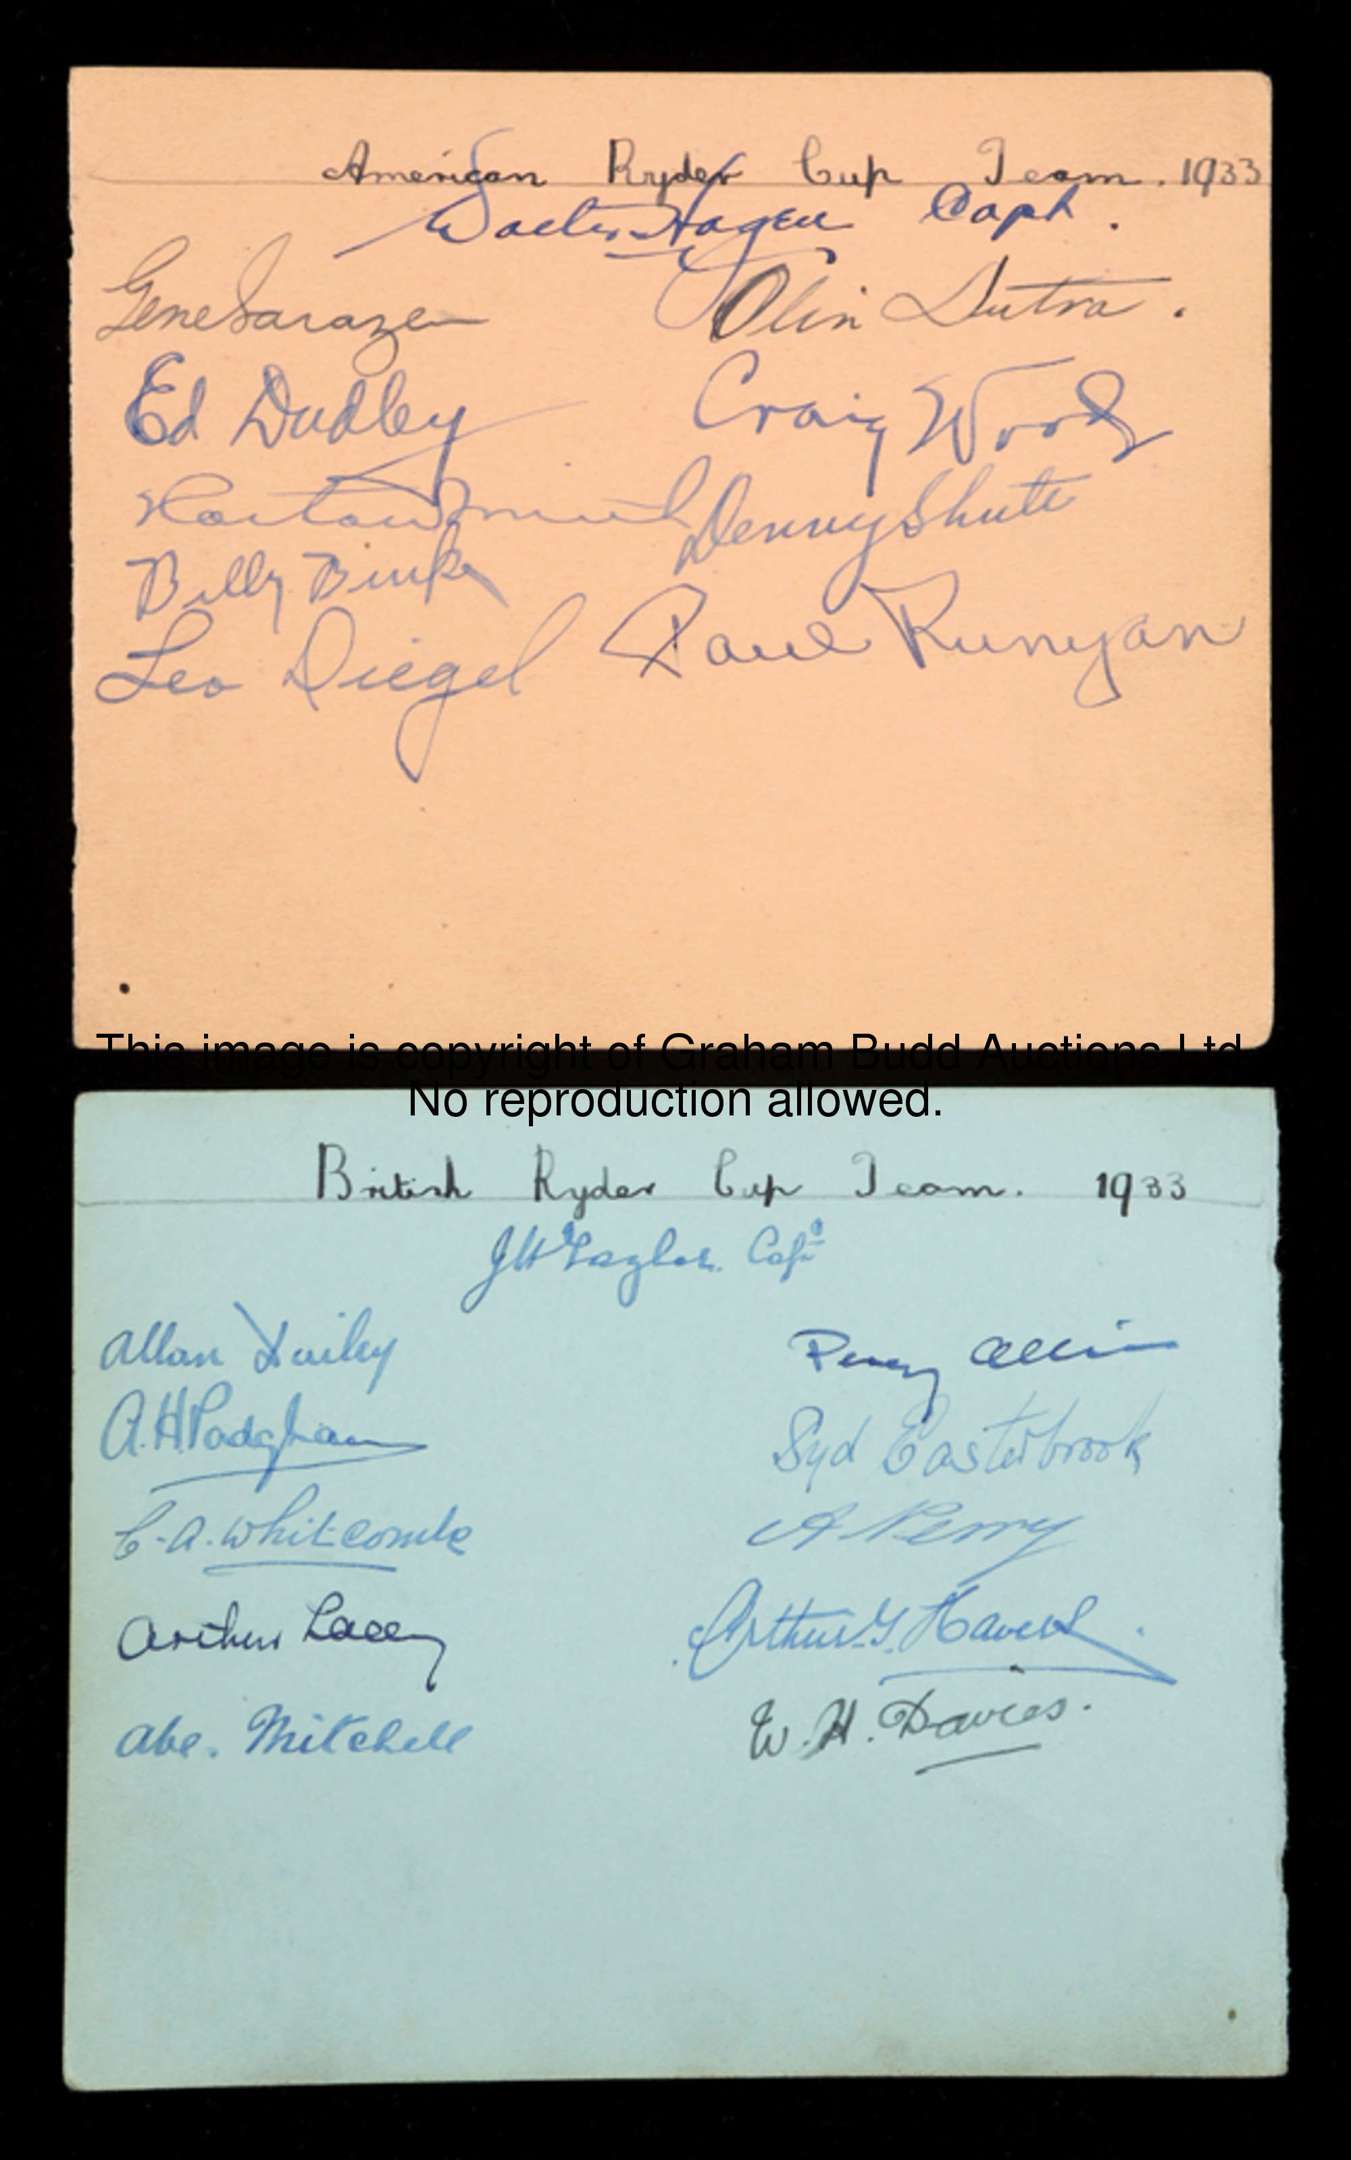 American Ryder Cup Team. 1933
Walter Hagen Capt.
Gene Sarazen
Olin Dutra.
Ed Dudley
Craig Wood
Horton Smith
Denny Shute
Billy Burke
Leo Diegel
Paul Runyan
This image is copyright of Graham Budd Auctions Ltd.
No reproduction allowed.
British Ryder Cup Team. 1933
J H Taylor. Capt
Allan Dailey
Percy Alliss
A.H. Padgham
Syd Easterbrook
C.A. Whitcombe
A Perry
Arthur Lacey
Arthur G. Havers.
Abe. Mitchell
W. H. Davies.